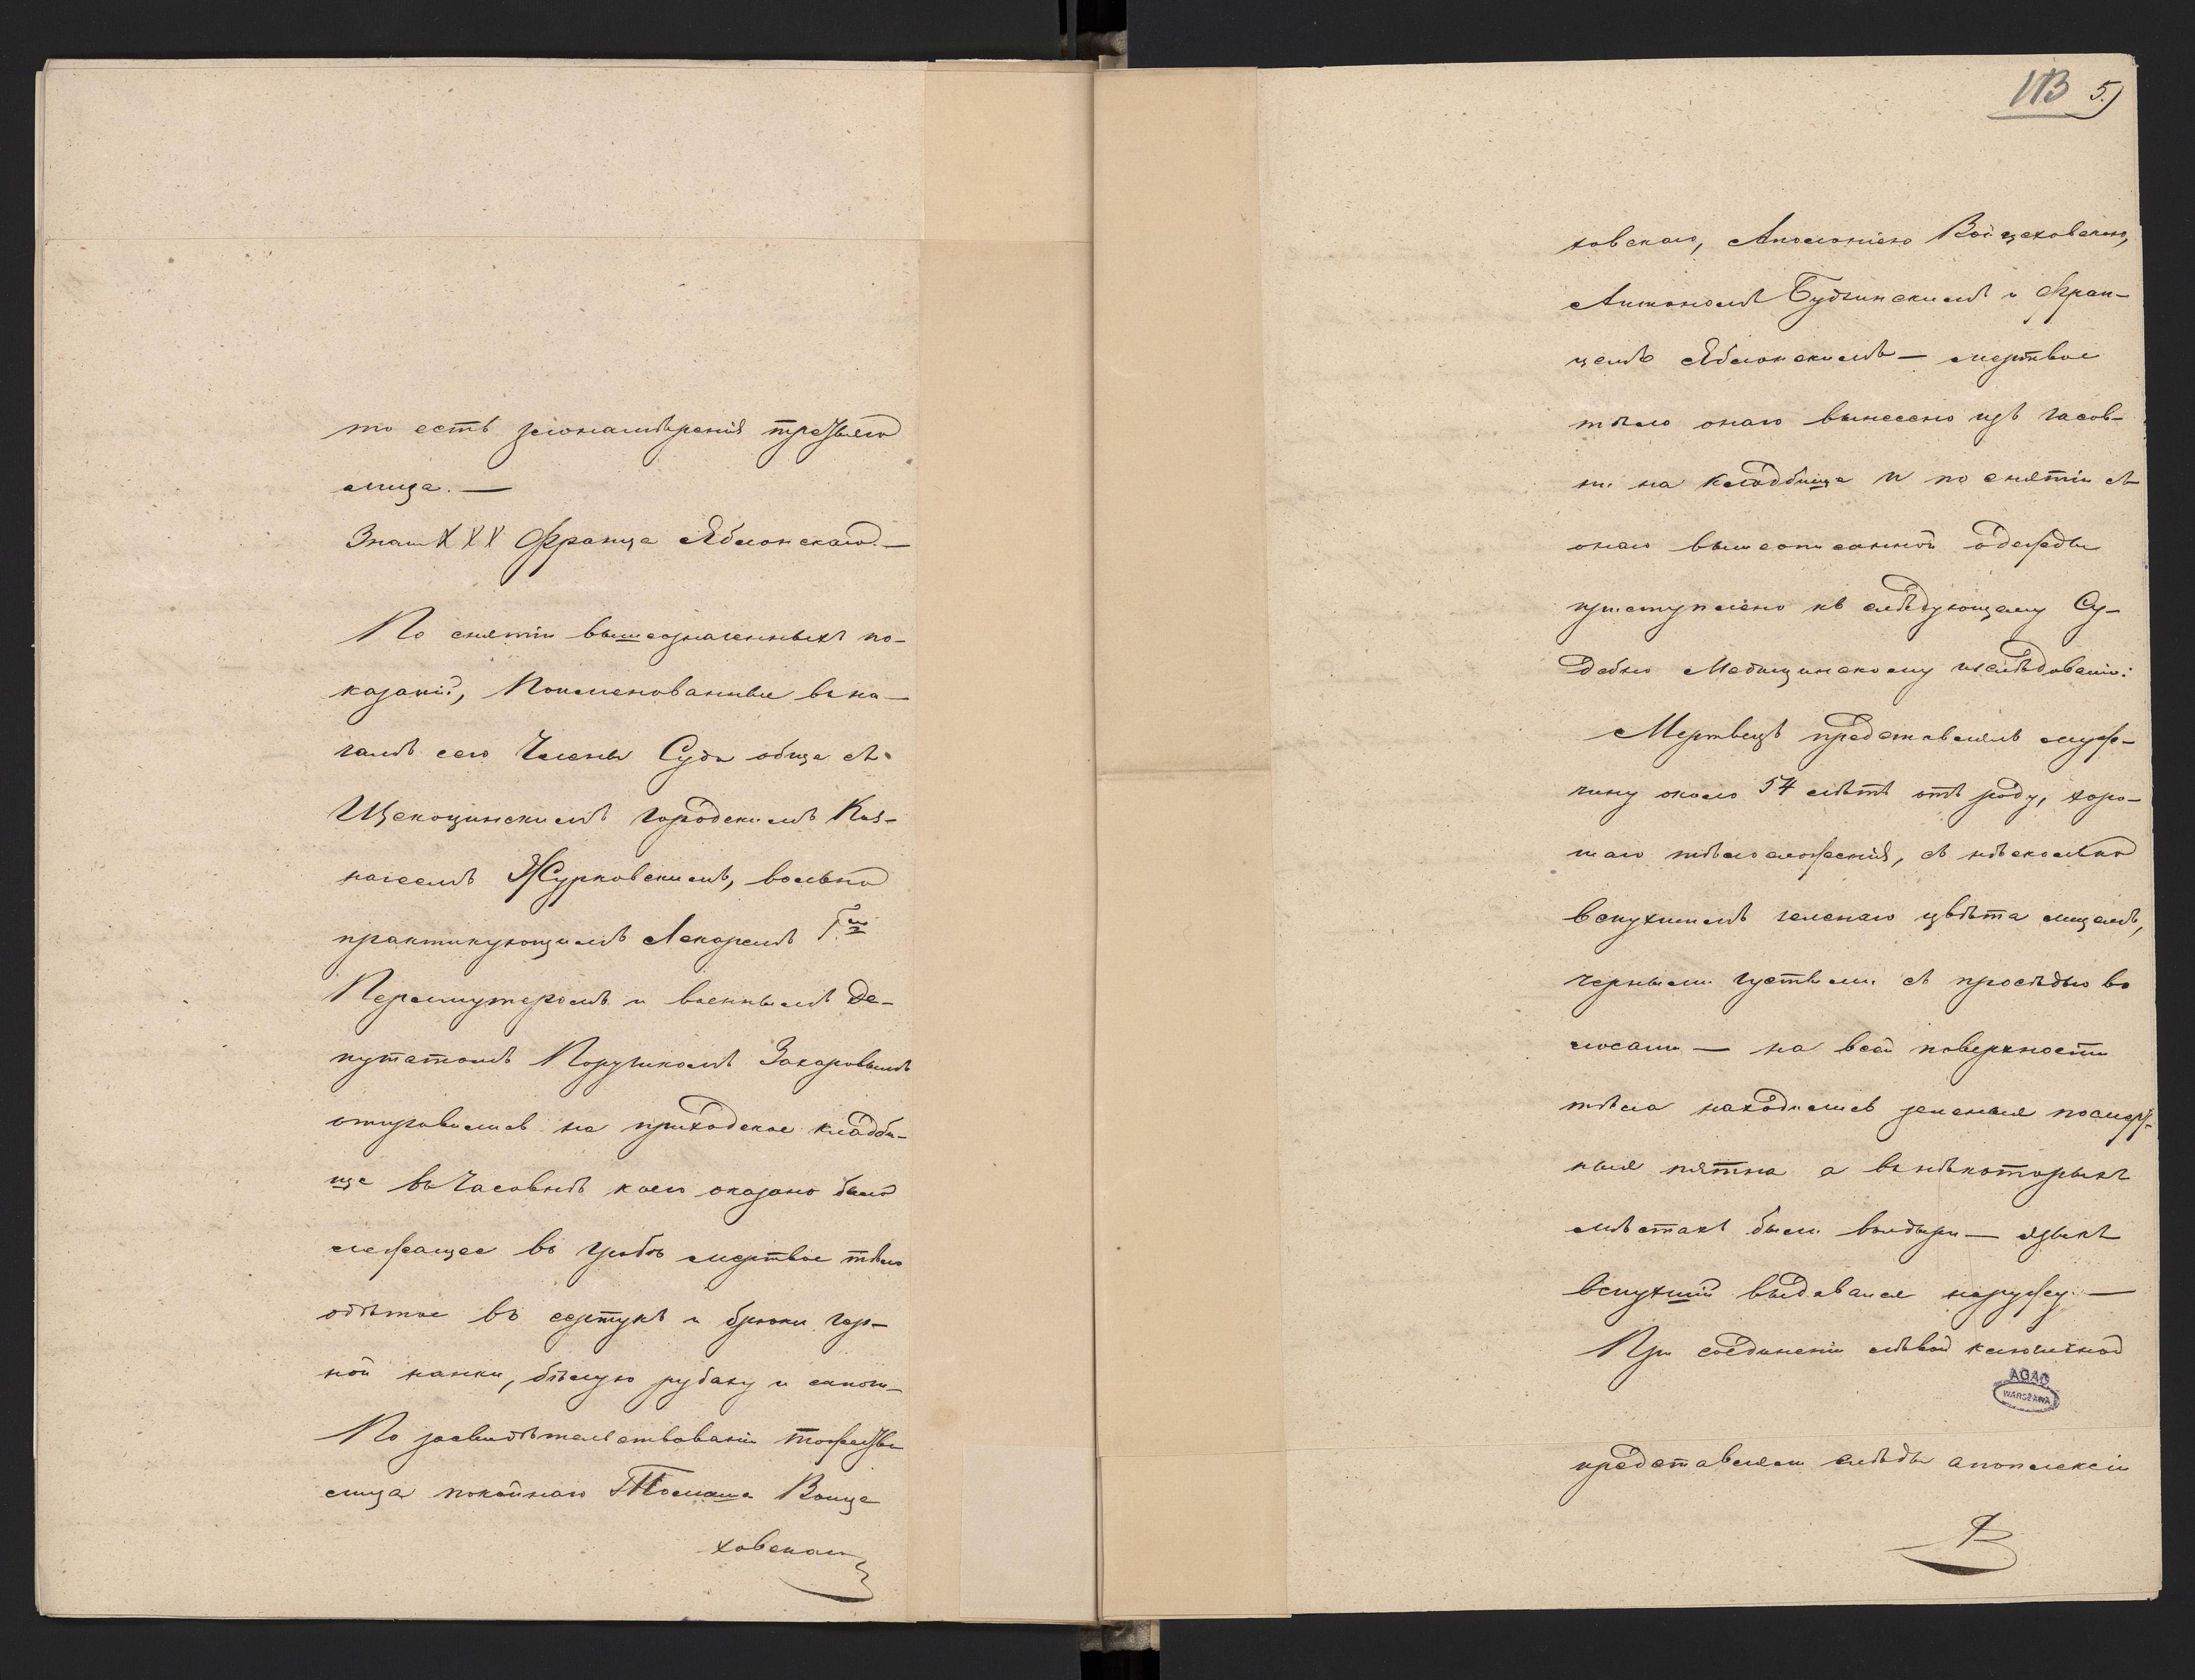 то есть злонамѣренія третьяго
лица. —
Знаки XXX Франца Яблонскаго. —
По снятіи вышеозначенныхъ по-
казаній, Поименованные въ на-
чалѣ сего Члены Суда обще съ
Щекоцинскимъ Городскимъ Каз-
начеемъ Журковскимъ, вольно
практикующимъ Лекаремъ Г.мъ
Перлмутеромъ и военнымъ Де-
путатомъ Поручикомъ Захаровымъ
отправились на приходское кладби-
ще въ Часовнѣ коего оказано было
лежащее въ гробѣ мертвое тѣло
одѣтое въ сертукъ и брюки чер-
ной нанки, бѣлую рубаху и сапоги —
По засвидѣтельствованіи тожества
лица покойнаго Томаша Войце
ховскаго
113 5.)
ховскаго, Аполоніею Войцеховскою,
Антономъ Будзинскимъ и Фран-
цемъ Яблонскимъ — мертвое
тѣло онаго вынесено изъ часов-
ни на кладбище и по снятіи съ
онаго вышеописанной одежды
приступлено къ слѣдующему Су-
дебно Медицинскому изслѣдованію:
Мертвецъ представлялъ муж-
чину около 54 лѣтъ отъ роду, хоро-
шаго тѣлосложенія, съ нѣсколько
вспухшимъ зеленаго цвѣта лицемъ,
черными густыми съ просѣдью во
лосами — на всей поверхности
тѣла находились зеленыя посмерт-
ныя пятна а въ нѣкоторыхъ
мѣстахъ были волдыри — языкъ
вспухшій выдавался наружу. —
При соединеніи лѣвой ключичной
AGAD
WARSZAWA
представляли слѣды апоплексіи